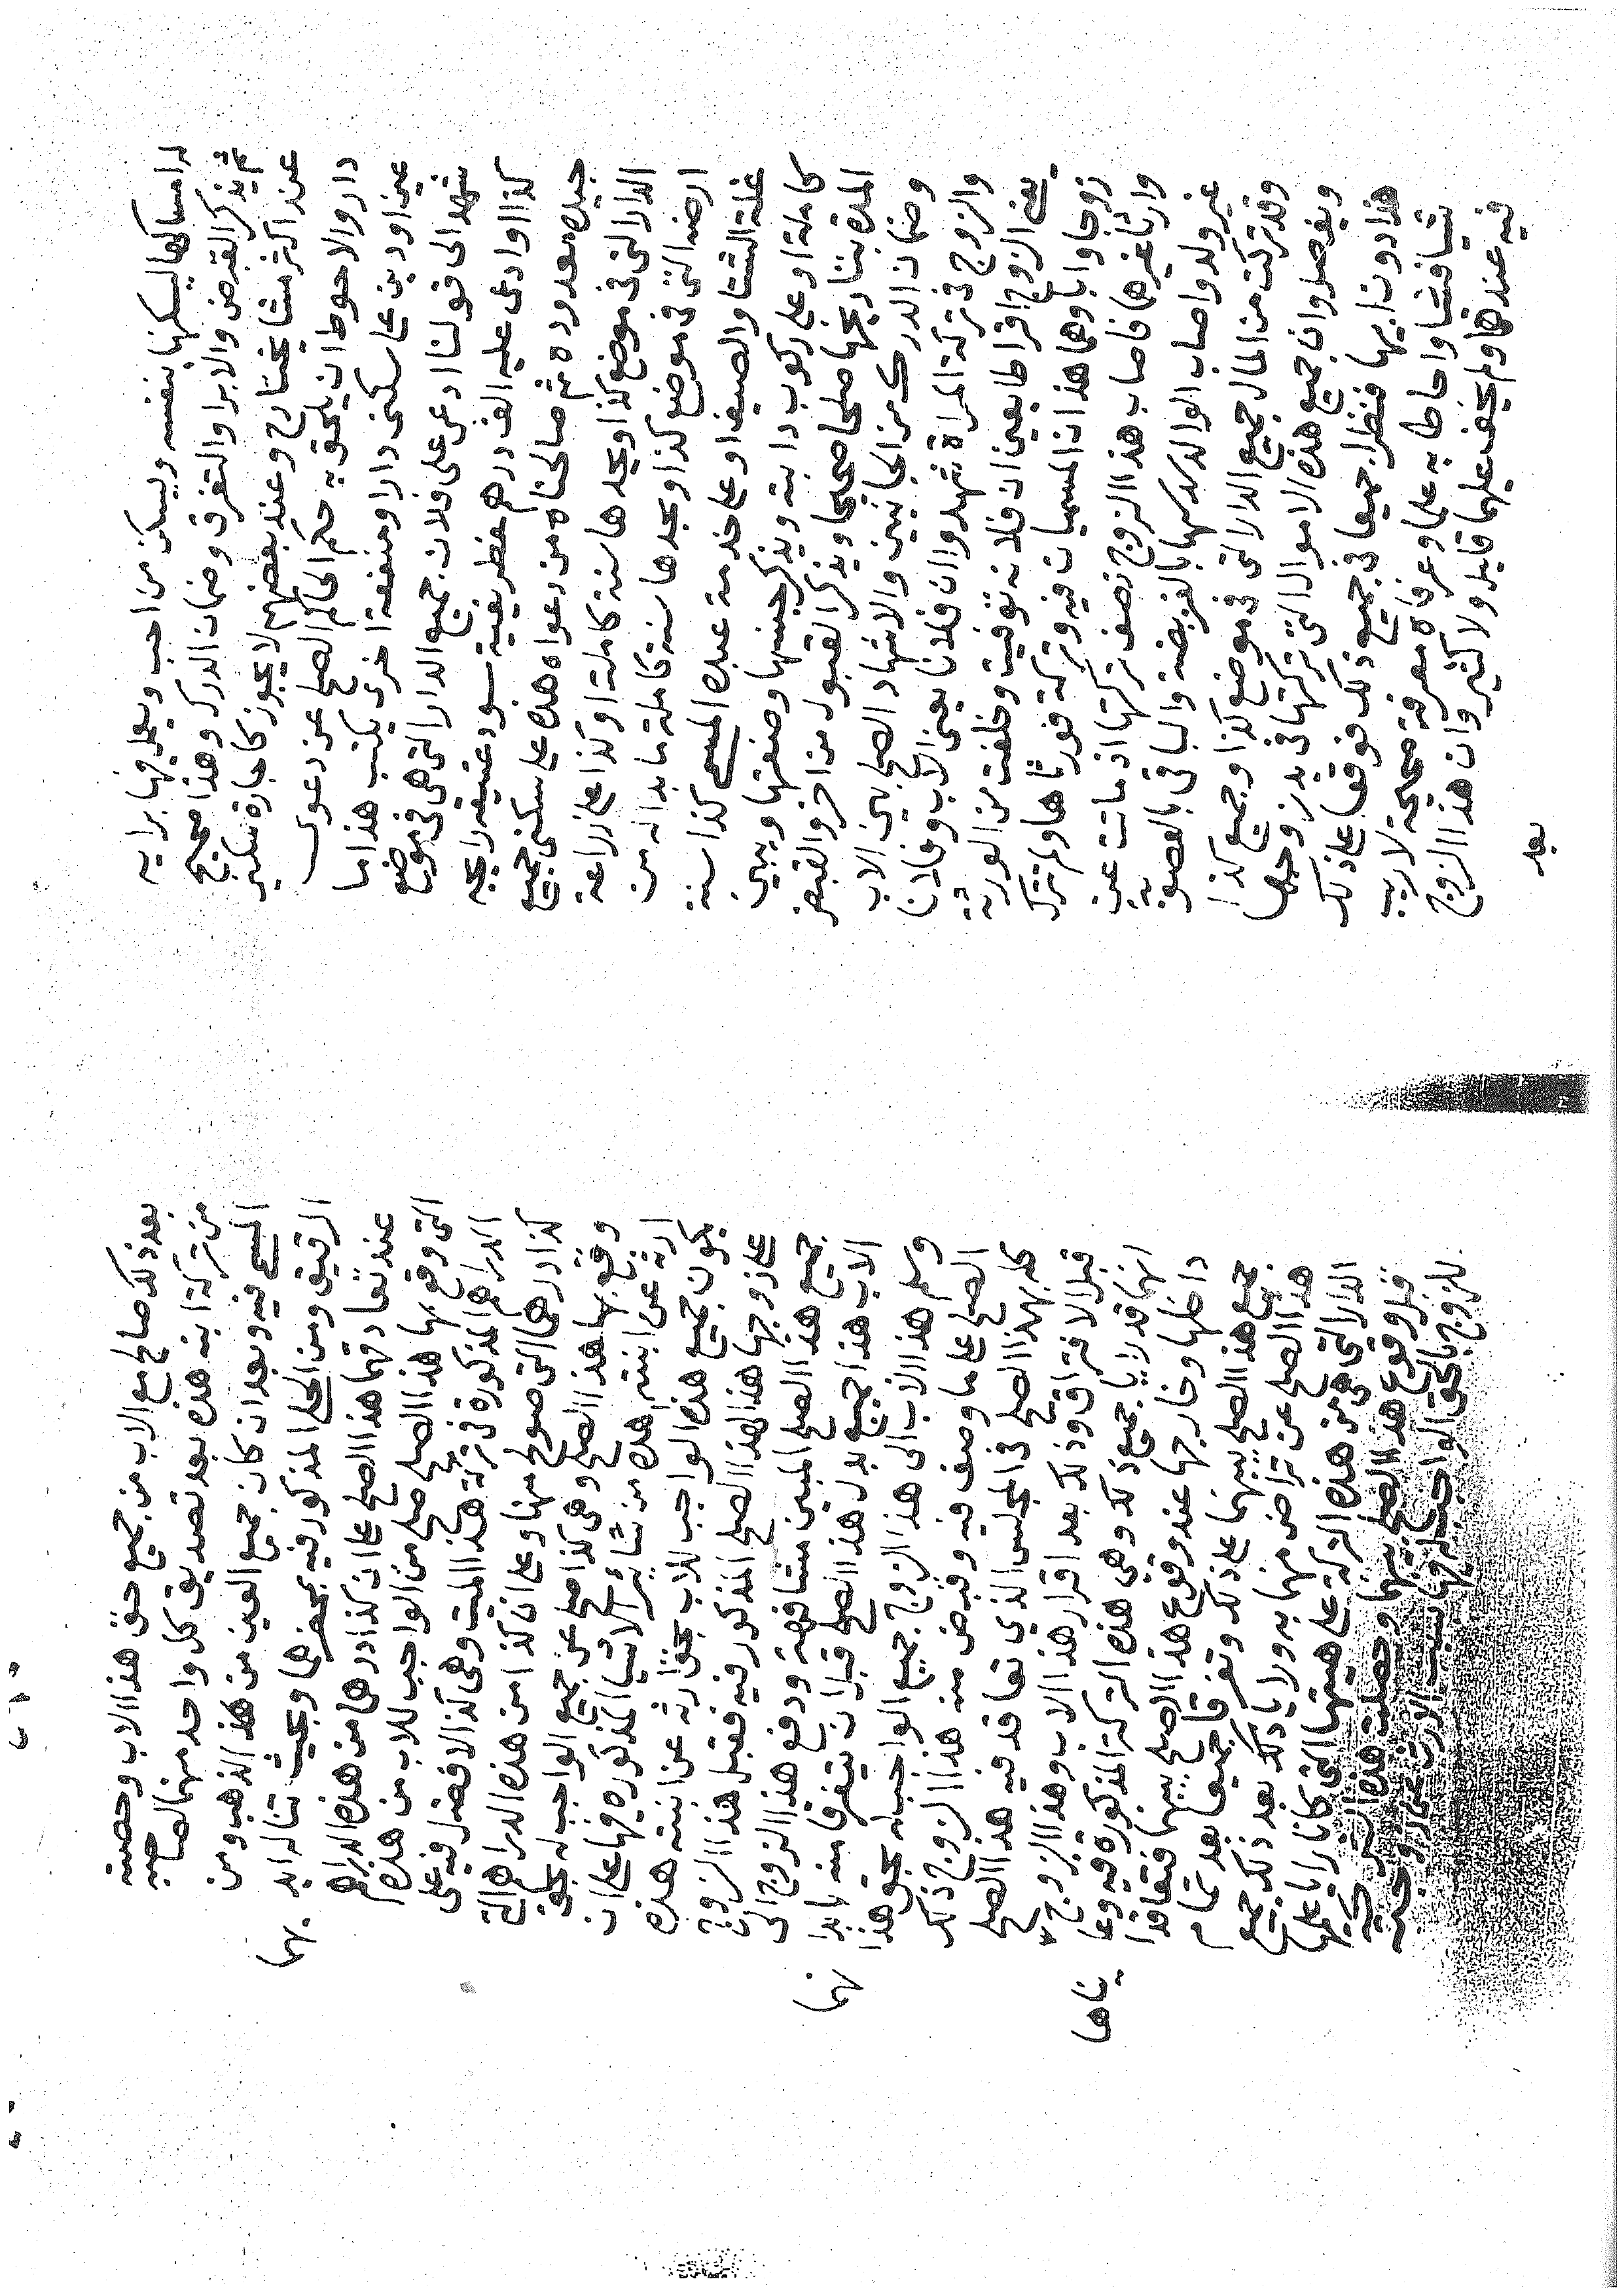 له امساكها ليسكنها بنفسه ويسكن من احب ويعمل فيها برايه
ثم يذكر القبض والابراء والتفرق وضمان الدرك وهذا صحيح
عند اكثر مشايخنا رح وعند بعضهم لا يجوز كاجارة سكنى
دار والاحوط ان يلحق به حكم الحاكم الصلح عن دعوى
عين او دين على سكنى دار او منفعة اخرى يكتب هذا ما
شهد الى قولنا ادعى على فلان جميع الدار التى هى فى موضع
كذا او ادعى عليه الف درهم غطريفية سود عتيقه رايجه
جيده معدوده ثم صالحاه من دعواه هذه على سكنى جميع
الدار التى فى موضع كذا ويحدها سنة كاملة او كذا على زراعة
ارضه التى فى موضع كذا ويحدها سنة كاملة ما بدا له من
غلة الشتا والصيف او على خدمة عبده المسمى كذا سنة
كاملة او على ركوب دابته ويذكر جنسها وصفتها ويبين
المدة بتاريخها صلحا صحيحا ويذكر القبول من اخر والقبض
وضمان الدرك من الجانبين والاشهاد الصلح بين الاب
والزوج فى تركة المراة شهدوا ان فلانا يعنى الاب وفلانا
يعنى الزوج اقرا طايعين ان فلانة توفيت وخلفت من الورثة
زوجا وابا وهما هذان المسميان فيه وتركة فورثاها ولم تترك
وارثا غيرهما فاصاب هذا الزوج نصف تركتها اذ ماتت عن
غير ولد واصاب الوالد سدسها بالفريضة والباقى بالعصوبة
وقد تركت من المال جميع الدار التى فى موضع كذا وجميع كذا
ويفصل وان جميع هذه الاموال التى تركتها فى يد زوجها
هذا دون ابيها فنظرا جميعا فى جميع ذلك فوقفا على ذلك
شيا فشيا واحاطا به علما وعرفاه معرفة صحيحة لاريب
فيه عندهما ولم يخف عليهما قليل ولا كثير وان هذا الزوج
بعد
بعد ذلك صالح مع الاب من جميع حق هذا الاب وحصته
من تركة ابنته هذه بعد تصديق كل واحد منهما لصاحبه
المسمى فيه وبعد ان كان جميع العين من هذا الذهب ومن
الرقيق ومن الحلى المذكور فيه بحضرهما وبحيث تناله ايد يهما
عند تعاقدهما هذا الصلح على ان كذا درهما من هذه الدراهم
التى وقع بها هذا الصلح صلح من الواجب للاب من هذه
الدراهم المذكورة فى تركة هذا الميت وهى كذا لا فضل فيه على
كذا درهما التى صولح منها وعلى ان كذا من هذه الدراهم التى
وقع بها هذا الصلح وهى كذا صلح عن جميع الواجب له بحق
ارثه عن ابنته هذه من سائر الاشيا المذكوره فيها على ان
يكون جميع هذه الواجب للاب بحق ارثه عن ابنته هذه
على زوجها هذا لهذا الصلح المذكور فيه فقبل هذا الزوج
جميع هذا الصلح المبين مشافهة ودفع هذا الزوج الى
الاب هذا جميع بدل هذا الصلح قبل ان يتفرقا منه بابدا نهما
وسلم هذا الاب الى هذا الزوج جميع الواجب له بحق هذا
الصلح على ما وصف فيه وقبض منه هذا الزوج ذلك
كله بهذا الصلح فى المجلس الذى تعاقدا فيه هذا الصلح
قبل الافتراق وذلك بعد اقرار هذا الاب وهذا الزوج
انهما قد رايا جميع ذلك وهى هذه التركة المذكورة فيه وعا يناها
داخلها وخارجها عند وقوع هذا الصلح بينهما فتعاقدا
جميع هذا الصلح بينهما على ذلك وتفرقا جميعا بعد تمام
هذا الصلح عن تراض منهما به ورايا ذلك بعد ذلك جميع
الدار التى هى من هذه التركة على هيئتها التى كانا رايا عليها
قبل وقوع هذا الصلح بينهما وحصلت هذه التركة
للزوج بالحق الواجب له فيها بسبب الارث عن زوجته